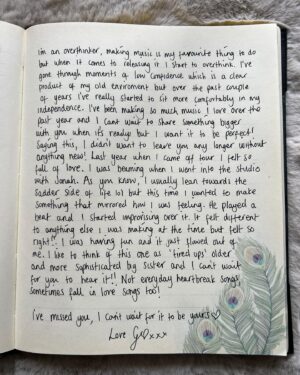 im an overthinker, making music is my favourite thing to do
but when it comes to releasing it I start to overthink. I've
gone through moments of low confidence which is a clear
product of my old enviroment but over the past couple
of years I've really started to sit more comfortably in my
independence. I've been making so much music! love over the
past year and I cant wait to share something bigger
with you when its ready! but I want it to be perfect!
Saying this, I didn't want to leave you any longer without
anything new! Last year when I came off tour I felt so
full of love. I was beaming when I went into the studio
with Jonah. As you know, I usually lean towards the
sadder side of life lol but this time I wanted to make
something that mirrored how I was feeling. He played a
beat and I started improvising over it. It felt different
to anything else I was making at the time but felt so
right!! I was having fun and it just flowed out of
me. I like to think of this one as 'tired ups' older
and more sophisticated big sister and I can't wait
for you to hear it!! Not everyday heartbreak songs,
sometimes fall in love songs too!
I've missed you, I can't wait for it to be yours♡
Love G♡xxx